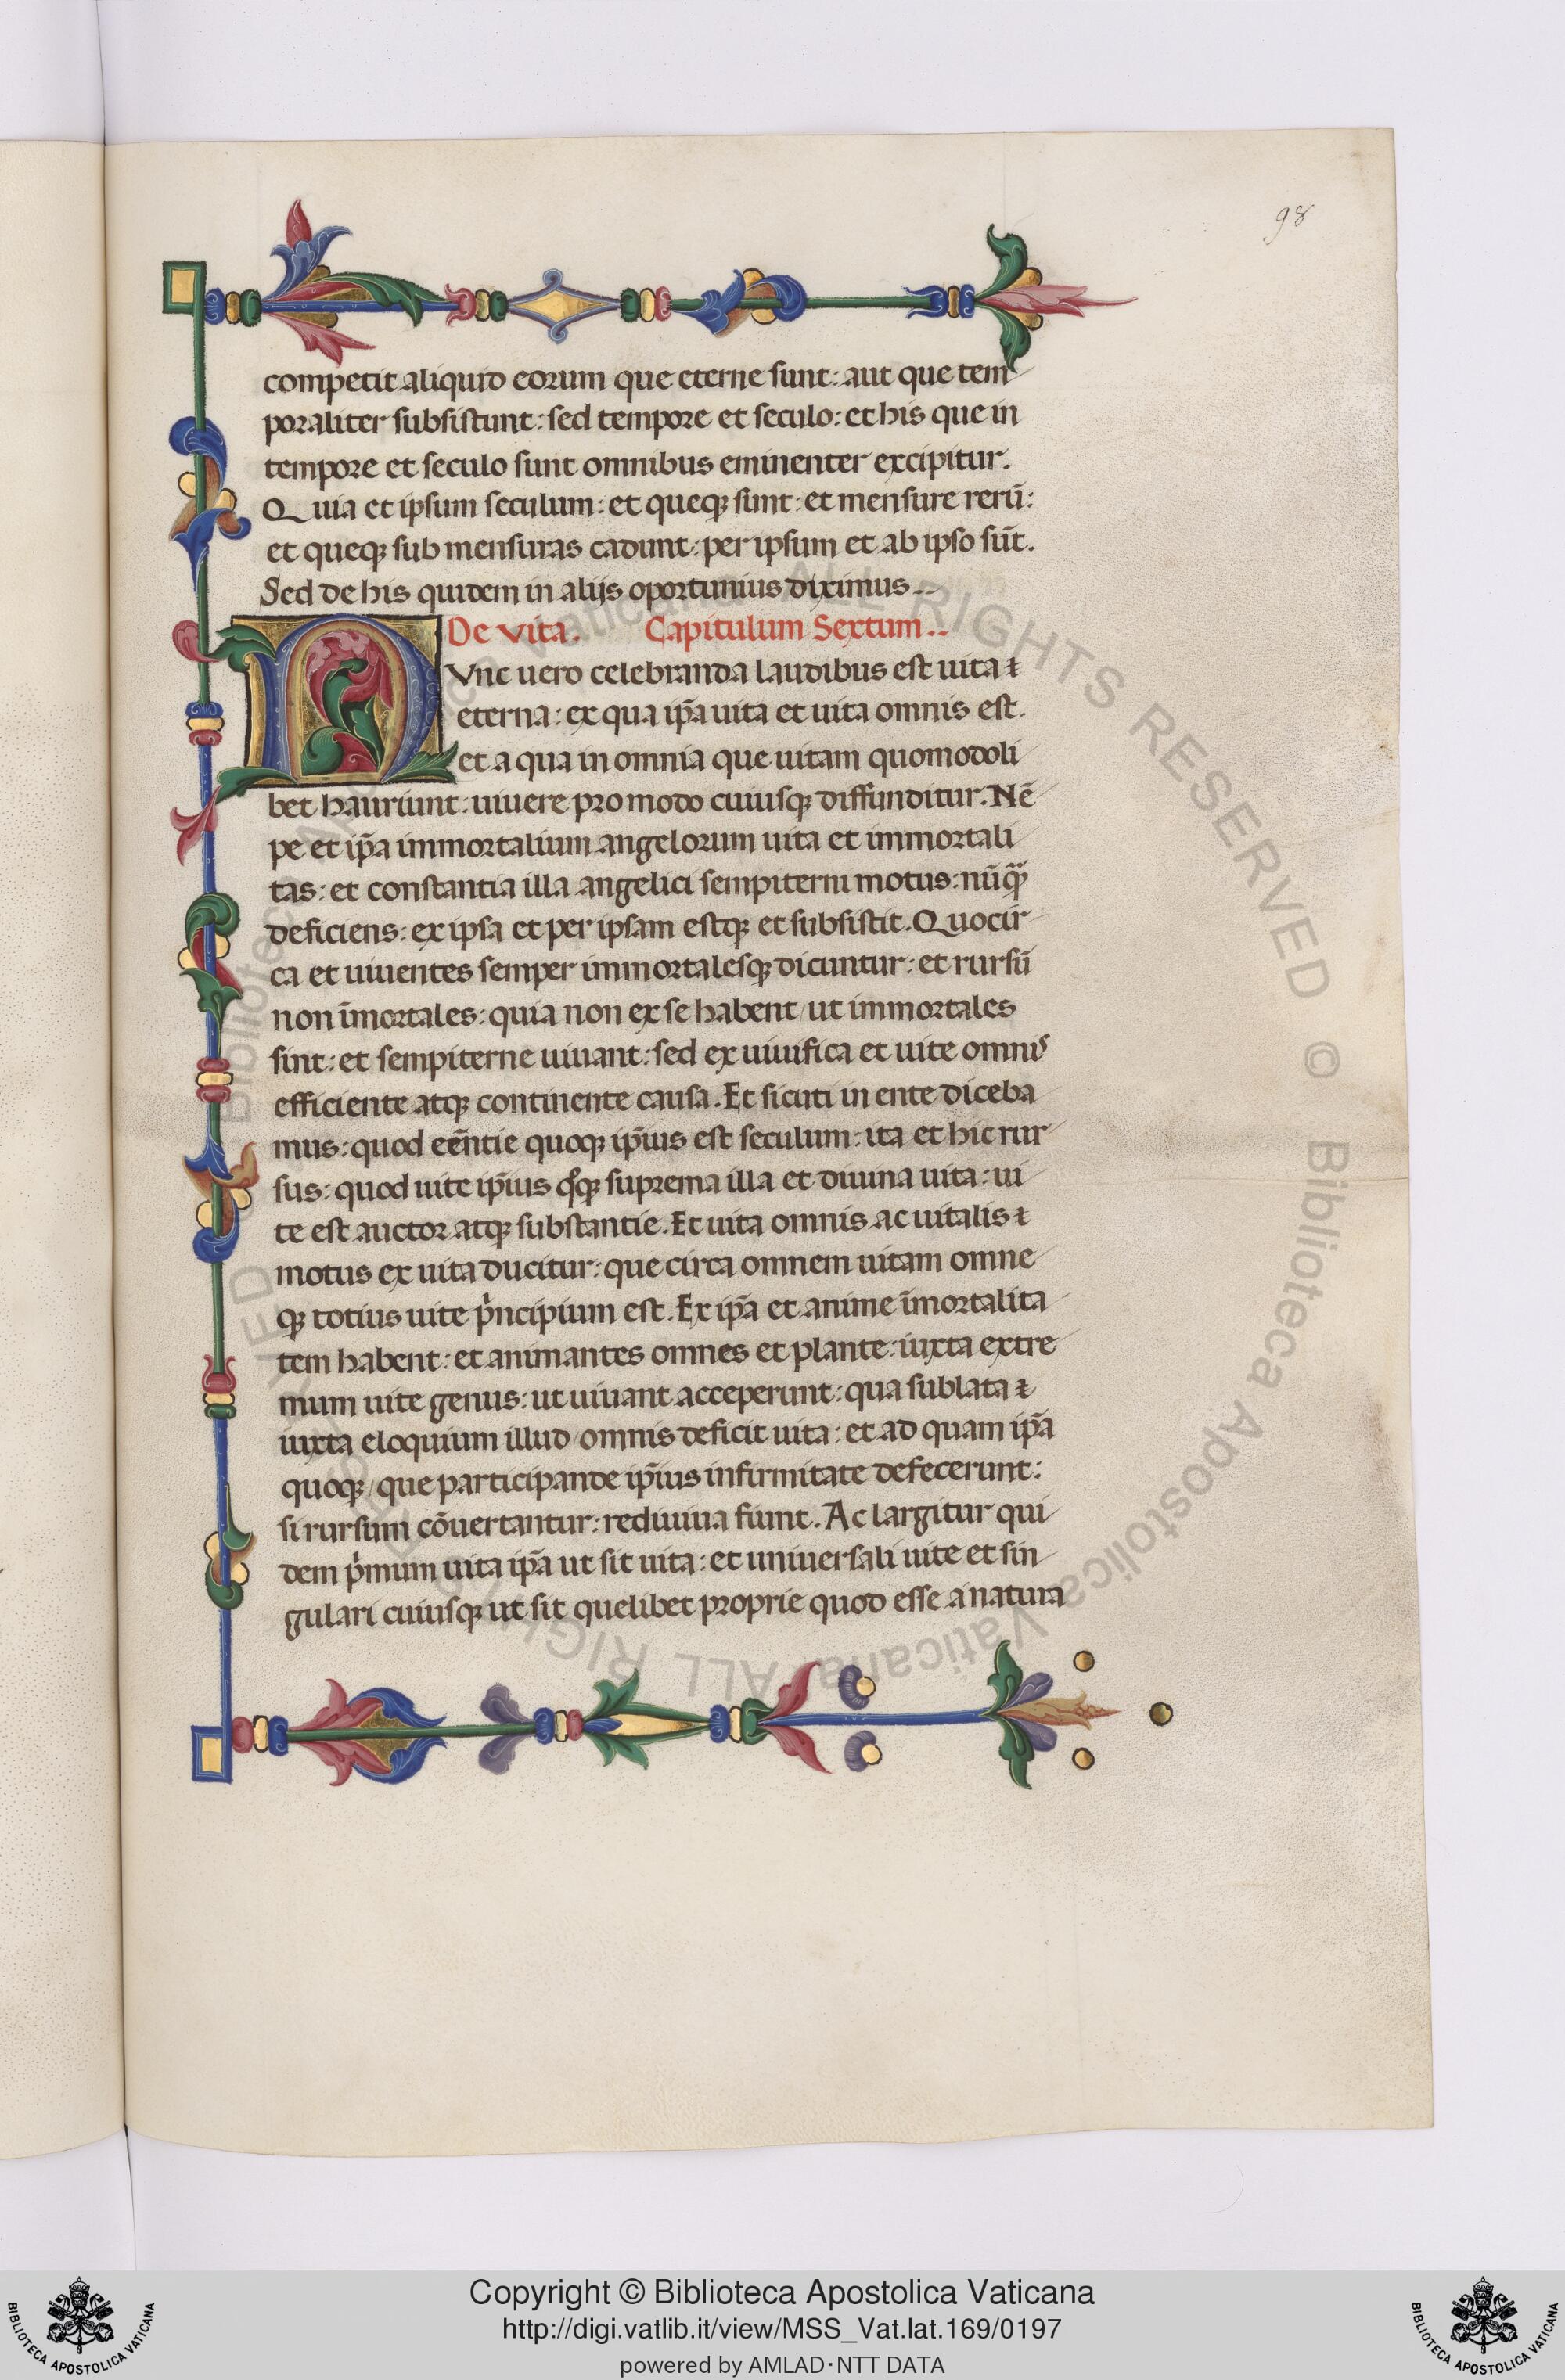 98
competit aliquid eorum que eterne sunt: aut que tem
poraliter subsistunt: sed tempore et seculo: et his que in
tempore et seculo sunt omnibus eminenter excipitur.
Quia et ipsum seculum: et queqꝫ sunt: et mensure rerū:
et queqꝫ sub mensuras cadunt: per ipsum et ab ipso sūt.
Sed de his quidem in alijs oportunius diximus..
De vita. Capitulum Sextum..
NVnc uero celebranda laudibus est uita ⁊
eterna: ex qua ip̄a uita et uita omnis est.
et a qua in omnia que uitam quomodoli
bet hauriunt: uiuere pro modo cuiusqꝫ diffunditur. Nē
pe et ip̄a immortalium angelorum uita et immortali
tas: et constantia illa angelici sempiterni motus: nūꝙ̄
deficiens: ex ipsa et per ipsam estqꝫ et subsistit. Quocir
ca et uiuentes semper immortalesqꝫ dicuntur: et rursū
non īmortales: quia non ex se habent/ ut immortales
sint: et sempiterne uiuant: sed ex uiuifica et uite omnis
efficiente atqꝫ continente causa. Et sicuti in ente diceba
mus: quod eēntie quoqꝫ ip̄ius est seculum: ita et hic rur
sus: quod uite ip̄ius qͦqꝫ suprema illa et diuina uita: ui
te est auctor atqꝫ substantie. Et uita omnis ac uitalis ⁊
motus ex uita ducitur: que circa omnem uitam omne
qꝫ totius uite pͥncipium est. Ex ip̄a et anime īmortalita
tem habent: et animantes omnes et plante: iuxta extre
mum uite genus: ut uiuant acceperunt: qua sublata ⁊
iuxta eloquium illud/ omnis deficit uita: et ad quam ip̄a
quoqꝫ/ que participande ip̄ius infirmitate defecerunt:
si rursum cōuertantur: rediuiua fiunt. Ac largitur qui
dem pͥmum uita ip̄a ut sit uita: et uniuersali uite et sin
gulari cuiusqꝫ ut sit quelibet proprie quod esse a natura
Biblioteca Apostolica Vaticana ALL RIGHTS RESERVED ©
Copyright © Biblioteca Apostolica Vaticana
http://digi.vatlib.it/view/MSS_Vat.lat.169/0197
powered by AMLAD·NTT DATA
BIBLIOTECA APOSTOLICA VATICANA
BIBLIOTECA APOSTOLICA VATICANA